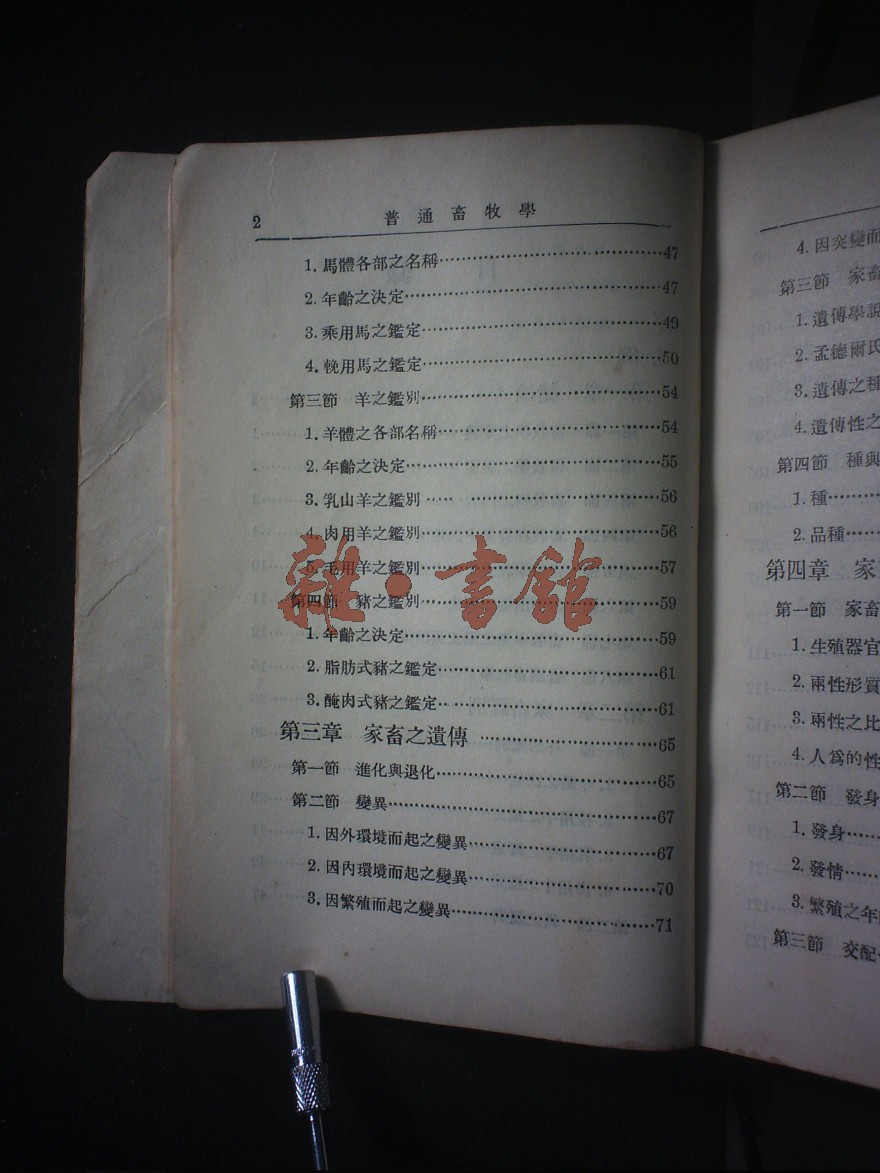 2 普通畜牧學
1. 馬體各部之名稱……47
2. 年齡之決定……47
3. 乘用馬之鑑定……49
4. 輓用馬之鑑定……50
第三節 羊之鑑別……54
1. 羊體之各部名稱……54
2. 年齡之決定……55
3. 乳山羊之鑑別……56
4. 肉用羊之鑑別……56
5. 毛用羊之鑑別……57
第四節 豬之鑑別……59
1. 年齡之決定……59
2. 脂肪式豬之鑑定……61
3. 醃肉式豬之鑑定……61
第三章 家畜之遺傳……65
第一節 進化與退化……65
第二節 變異……67
1. 因外環境而起之變異……67
2. 因內環境而起之變異……70
3. 因繁殖而起之變異……71
雜·書館
4. 因突變而
第三節 家畜
1. 遺傳學說
2. 孟德爾氏
3. 遺傳之種
4. 遺傳性之
第四節 種與
1. 種……
2. 品種……
第四章 家
第一節 家畜
1. 生殖器官
2. 兩性形質
3. 兩性之比
4. 人爲的性
第二節 發身
1. 發身……
2. 發情……
3. 繁殖之年
第三節 交配